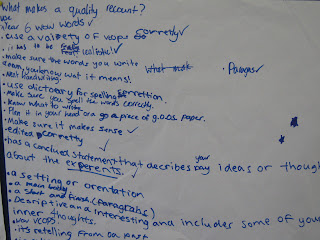 What makes a quality recount?
year 6 wow words ✓
• use a variety of vcops correctly ✓
• it has to be realistic! ✓
• make sure the words you write
mean you know wat it means!
• Paragras ✓
• Neat handwriting.
• use dictoary for spelling
make sure you spell the words correctly.
• know what to write
• Plan it in your head or a piece of g.o.o.s paper.
• Make sure it makes sense ✓
• edited corretly
• has a conclused statement that describes your ideas or though
about the experents. ✓
• a setting or orentation
• a main body
• a start and finish (Paragrahs)
• Descriptive and interesting and includes some of you
inner thoughts.
• wow vcops.
• its retelling from past